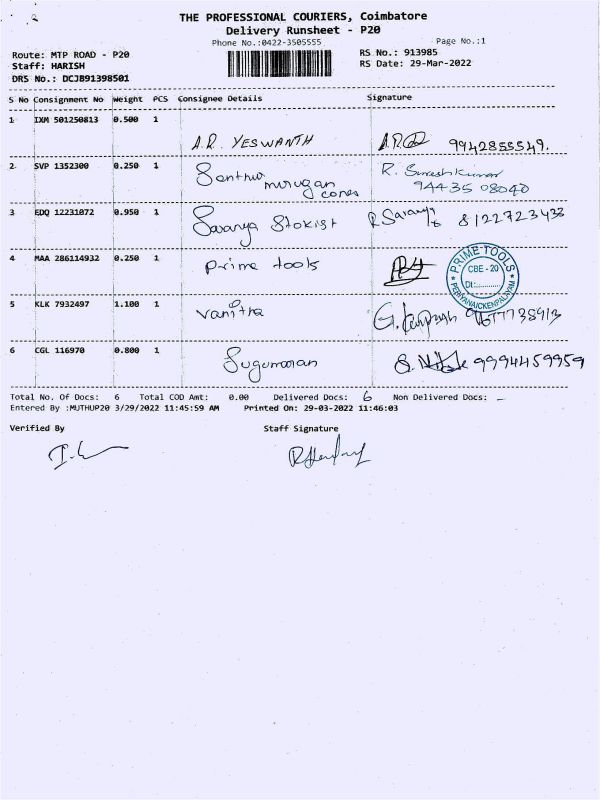 THE PROFESSIONAL COURIERS, Coimbatore
Delivery Runsheet - P20
Phone No.:0422-3505555
Page No.:1
Route: MTP ROAD - P20
RS No.: 913985
Staff: HARISH
RS Date: 29-Mar-2022
DRS No.: DCJB91398501
S No Consignment No Weight PCS Consignee Details Signature
1 IXM 501250813 0.500 1
A.R. YESWANTH 9942855549.
2 SVP 1352300 0.250 1 R. Sureshkumar
Santhu murugan cones 94435 08040
3 EDQ 12231072 0.950 1
Saranya Stokist R Saranya 8122723433
4 MAA 286114932 0.250 1 Prime tools
PRIME TOOLS
CBE - 20
Dt:..........
PERIYANAICKENPALAYAM
5 KLK 7932497 1.100 1 Vanitha
6 CGL 116970 0.800 1
Sugumaran 9994459959
Total No. Of Docs: 6 Total COD Amt: 0.00 Delivered Docs: 6 Non Delivered Docs: -
Entered By :MUTHUP20 3/29/2022 11:45:59 AM Printed On: 29-03-2022 11:46:03
Verified By Staff Signature